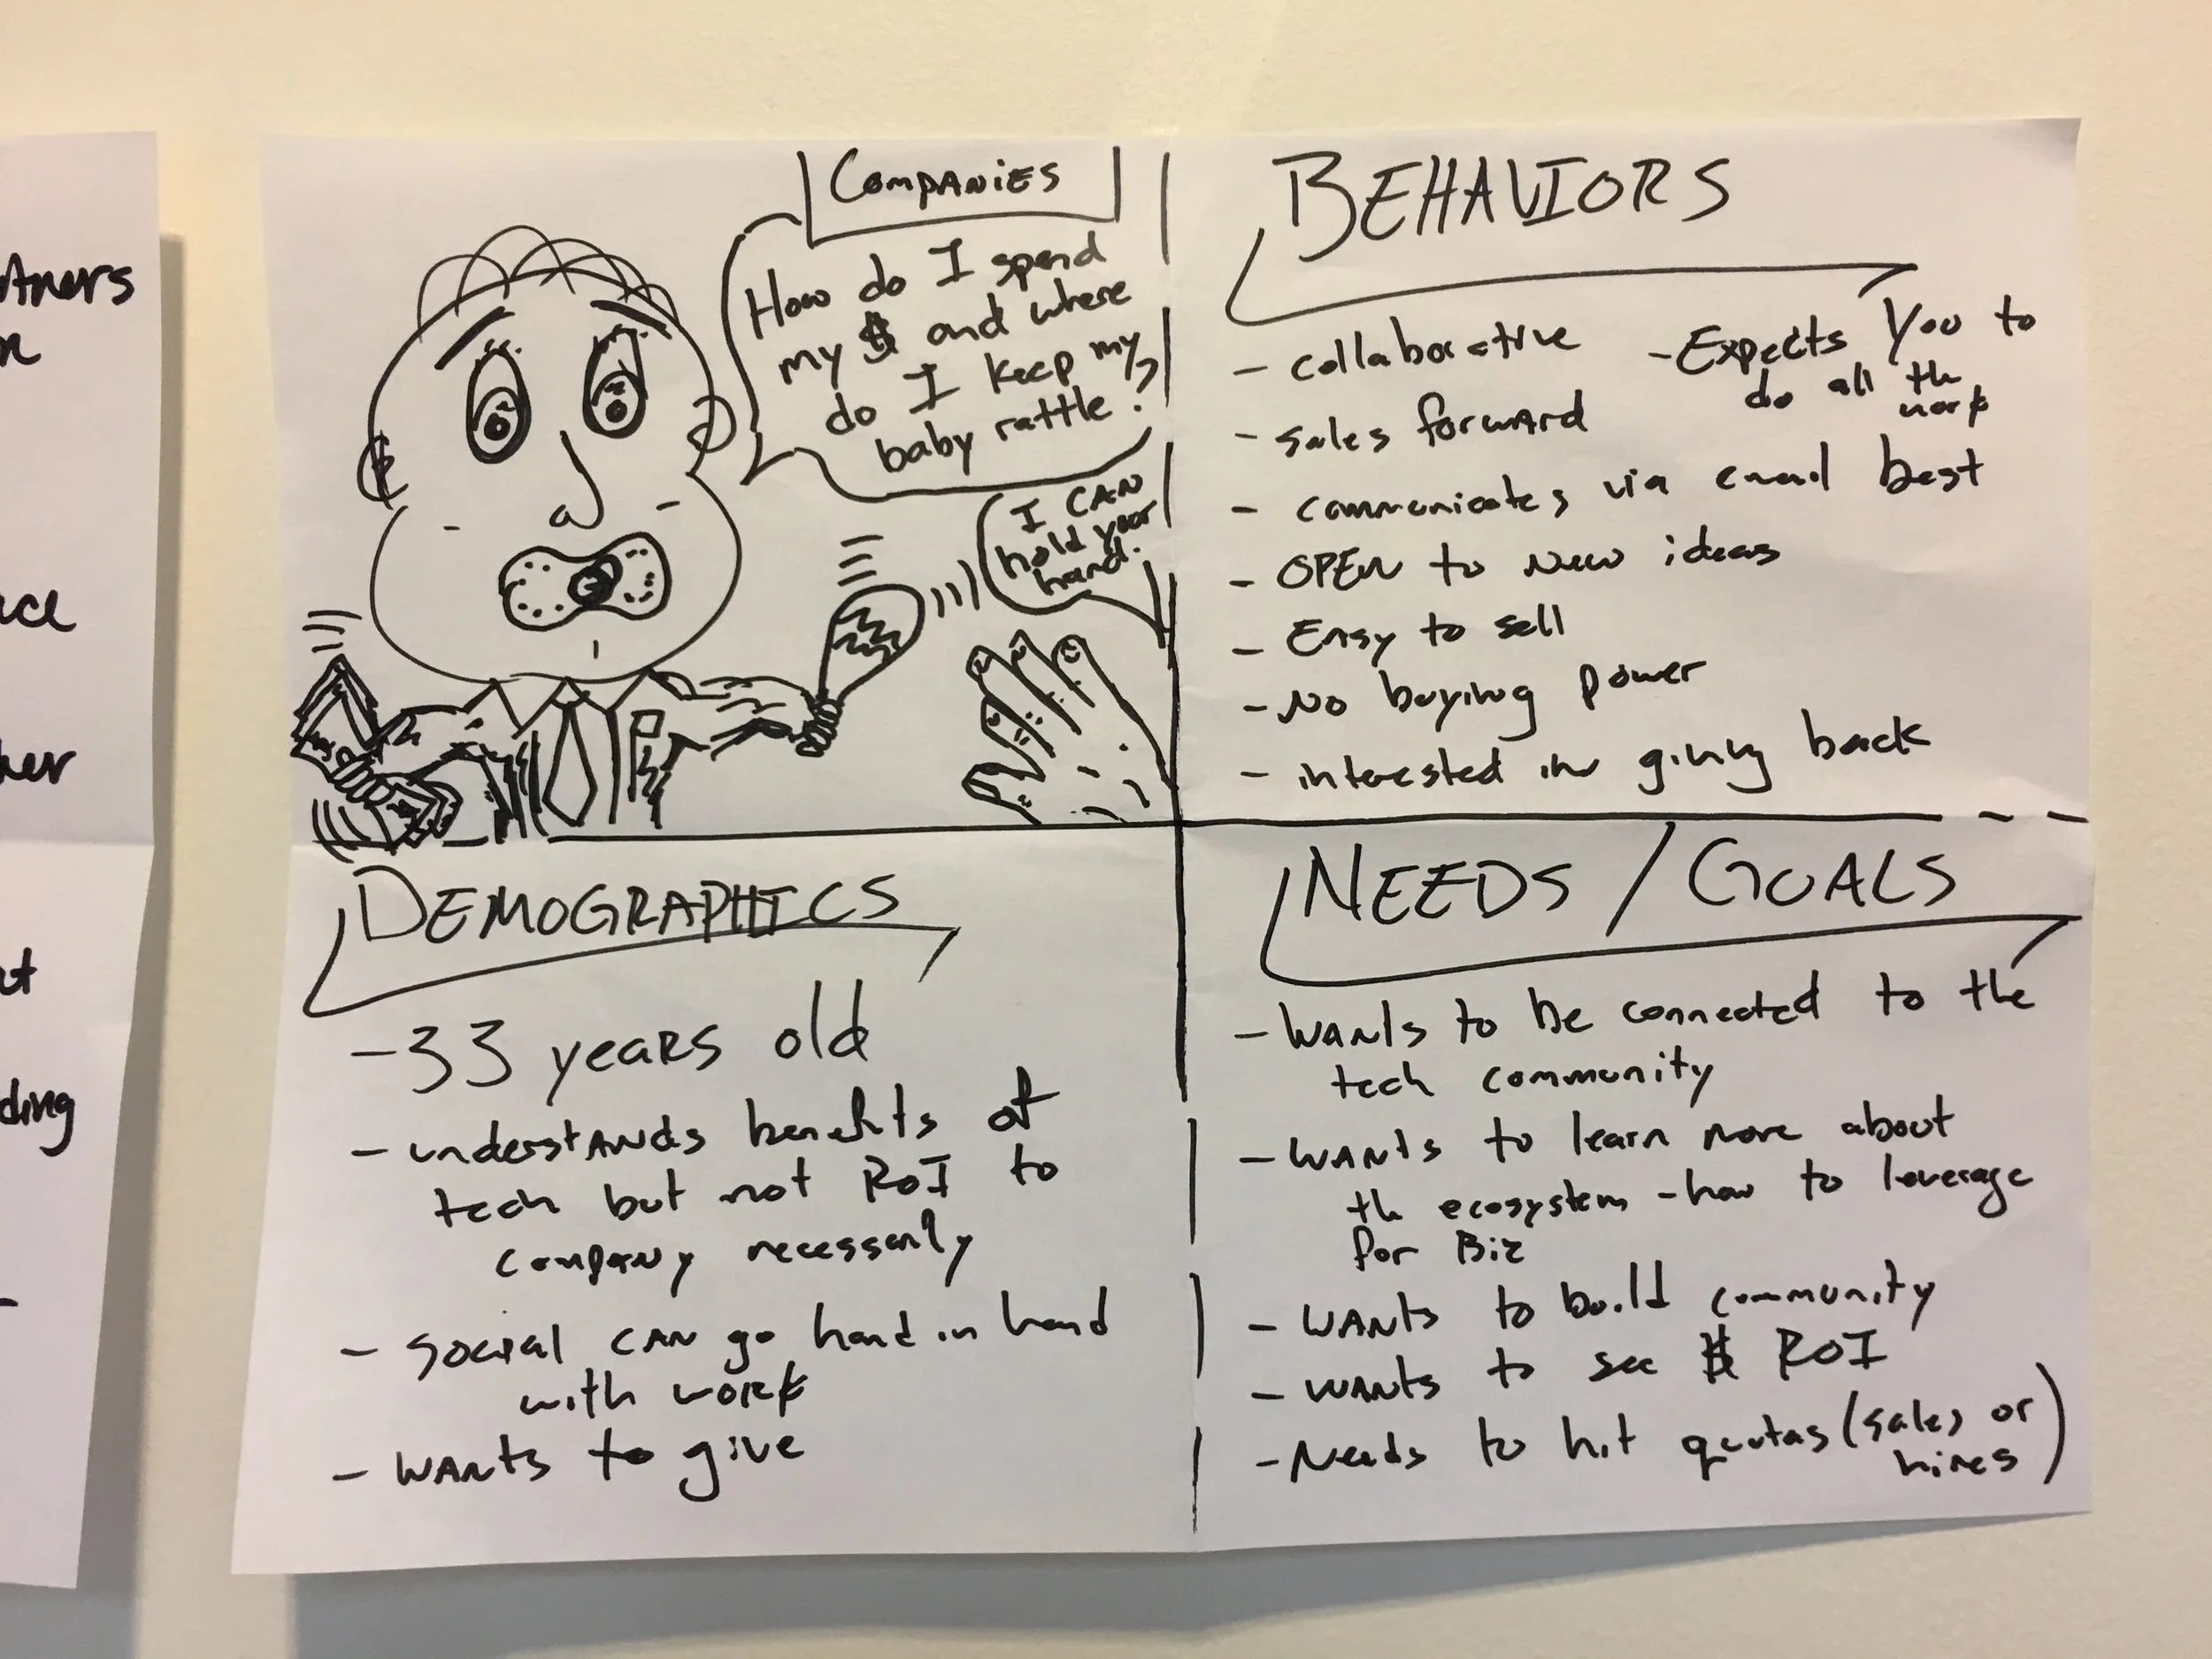 tners
ace
her
ut
ding
Companies
How do I spend
my $ and where
do I keep my
baby rattle?
I CAN
hold your
hand.
BEHAVIORS
- collaborative
- Expects You to
do all the
work
- sales forward
- communicates via email best
- OPEN to New ideas
- Easy to sell
- No buying power
- interested in giving back
DEMOGRAPHICS
- 33 years old
- understands benefits of
tech but not ROI to
company necessarily
- social can go hand in hand
with work
- wants to give
NEEDS / GOALS
- Wants to be connected to the
tech community
- wants to learn more about
the ecosystem - how to leverage
for Biz
- wants to build community
- wants to see $ ROI
- Needs to hit quotas (sales or
hires)